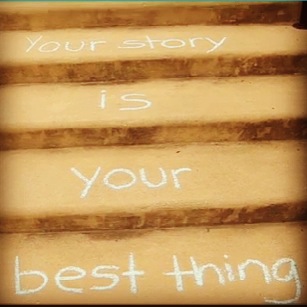 Your story
is
your
best thing